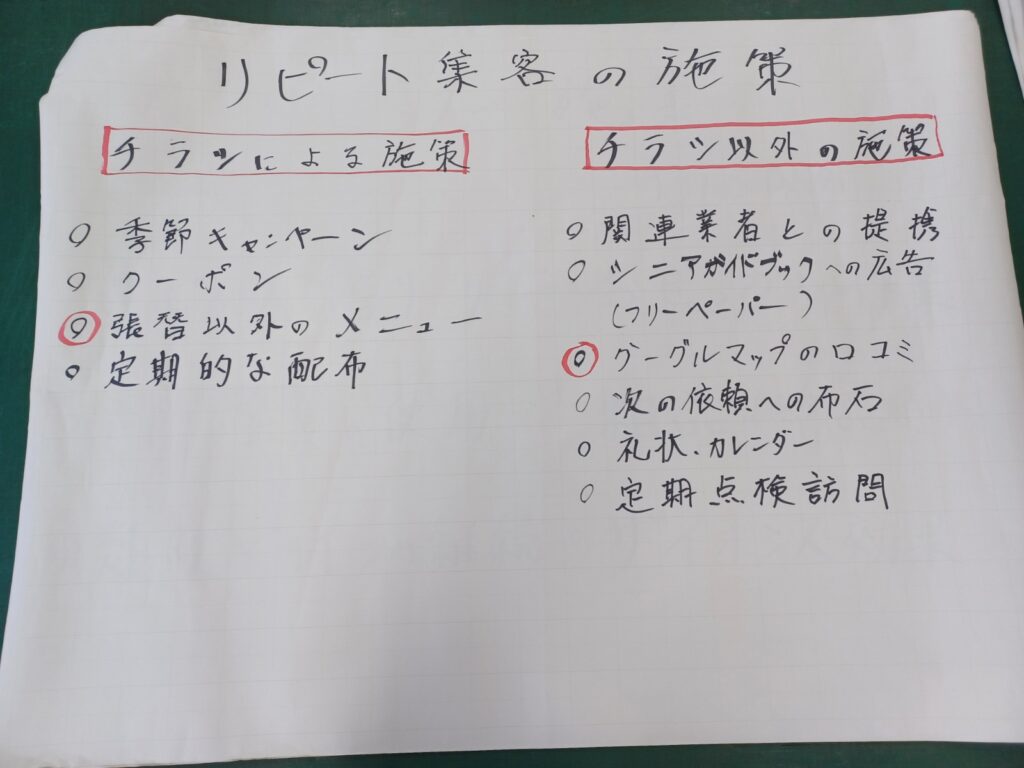 リピート集客の施策
チラシによる施策
○ 季節キャンペーン
○ クーポン
◎ 張替以外のメニュー
○ 定期的な配布
チラシ以外の施策
○ 関連業者との提携
○ シニアガイドブックへの広告
(フリーペーパー)
◎ グーグルマップの口コミ
○ 次の依頼への布石
○ 礼状、カレンダー
○ 定期点検訪問